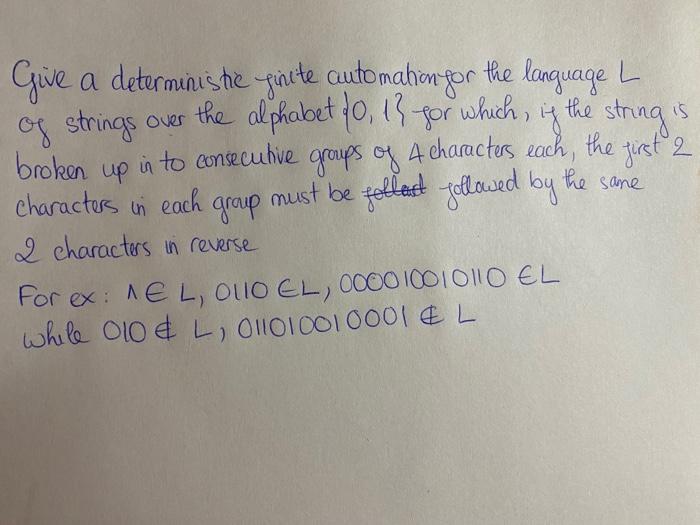 Give a deterministic finite automation for the language L
of strings over the alphabet {0, 1} for which, if the string is
broken up in to consecutive groups of 4 characters each, the first 2
characters in each group must be followed by the same
2 characters in reverse
For ex: Λ ∈ L, 0110 ∈ L, 000010010110 ∈ L
while 010 ∉ L, 011010010001 ∉ L